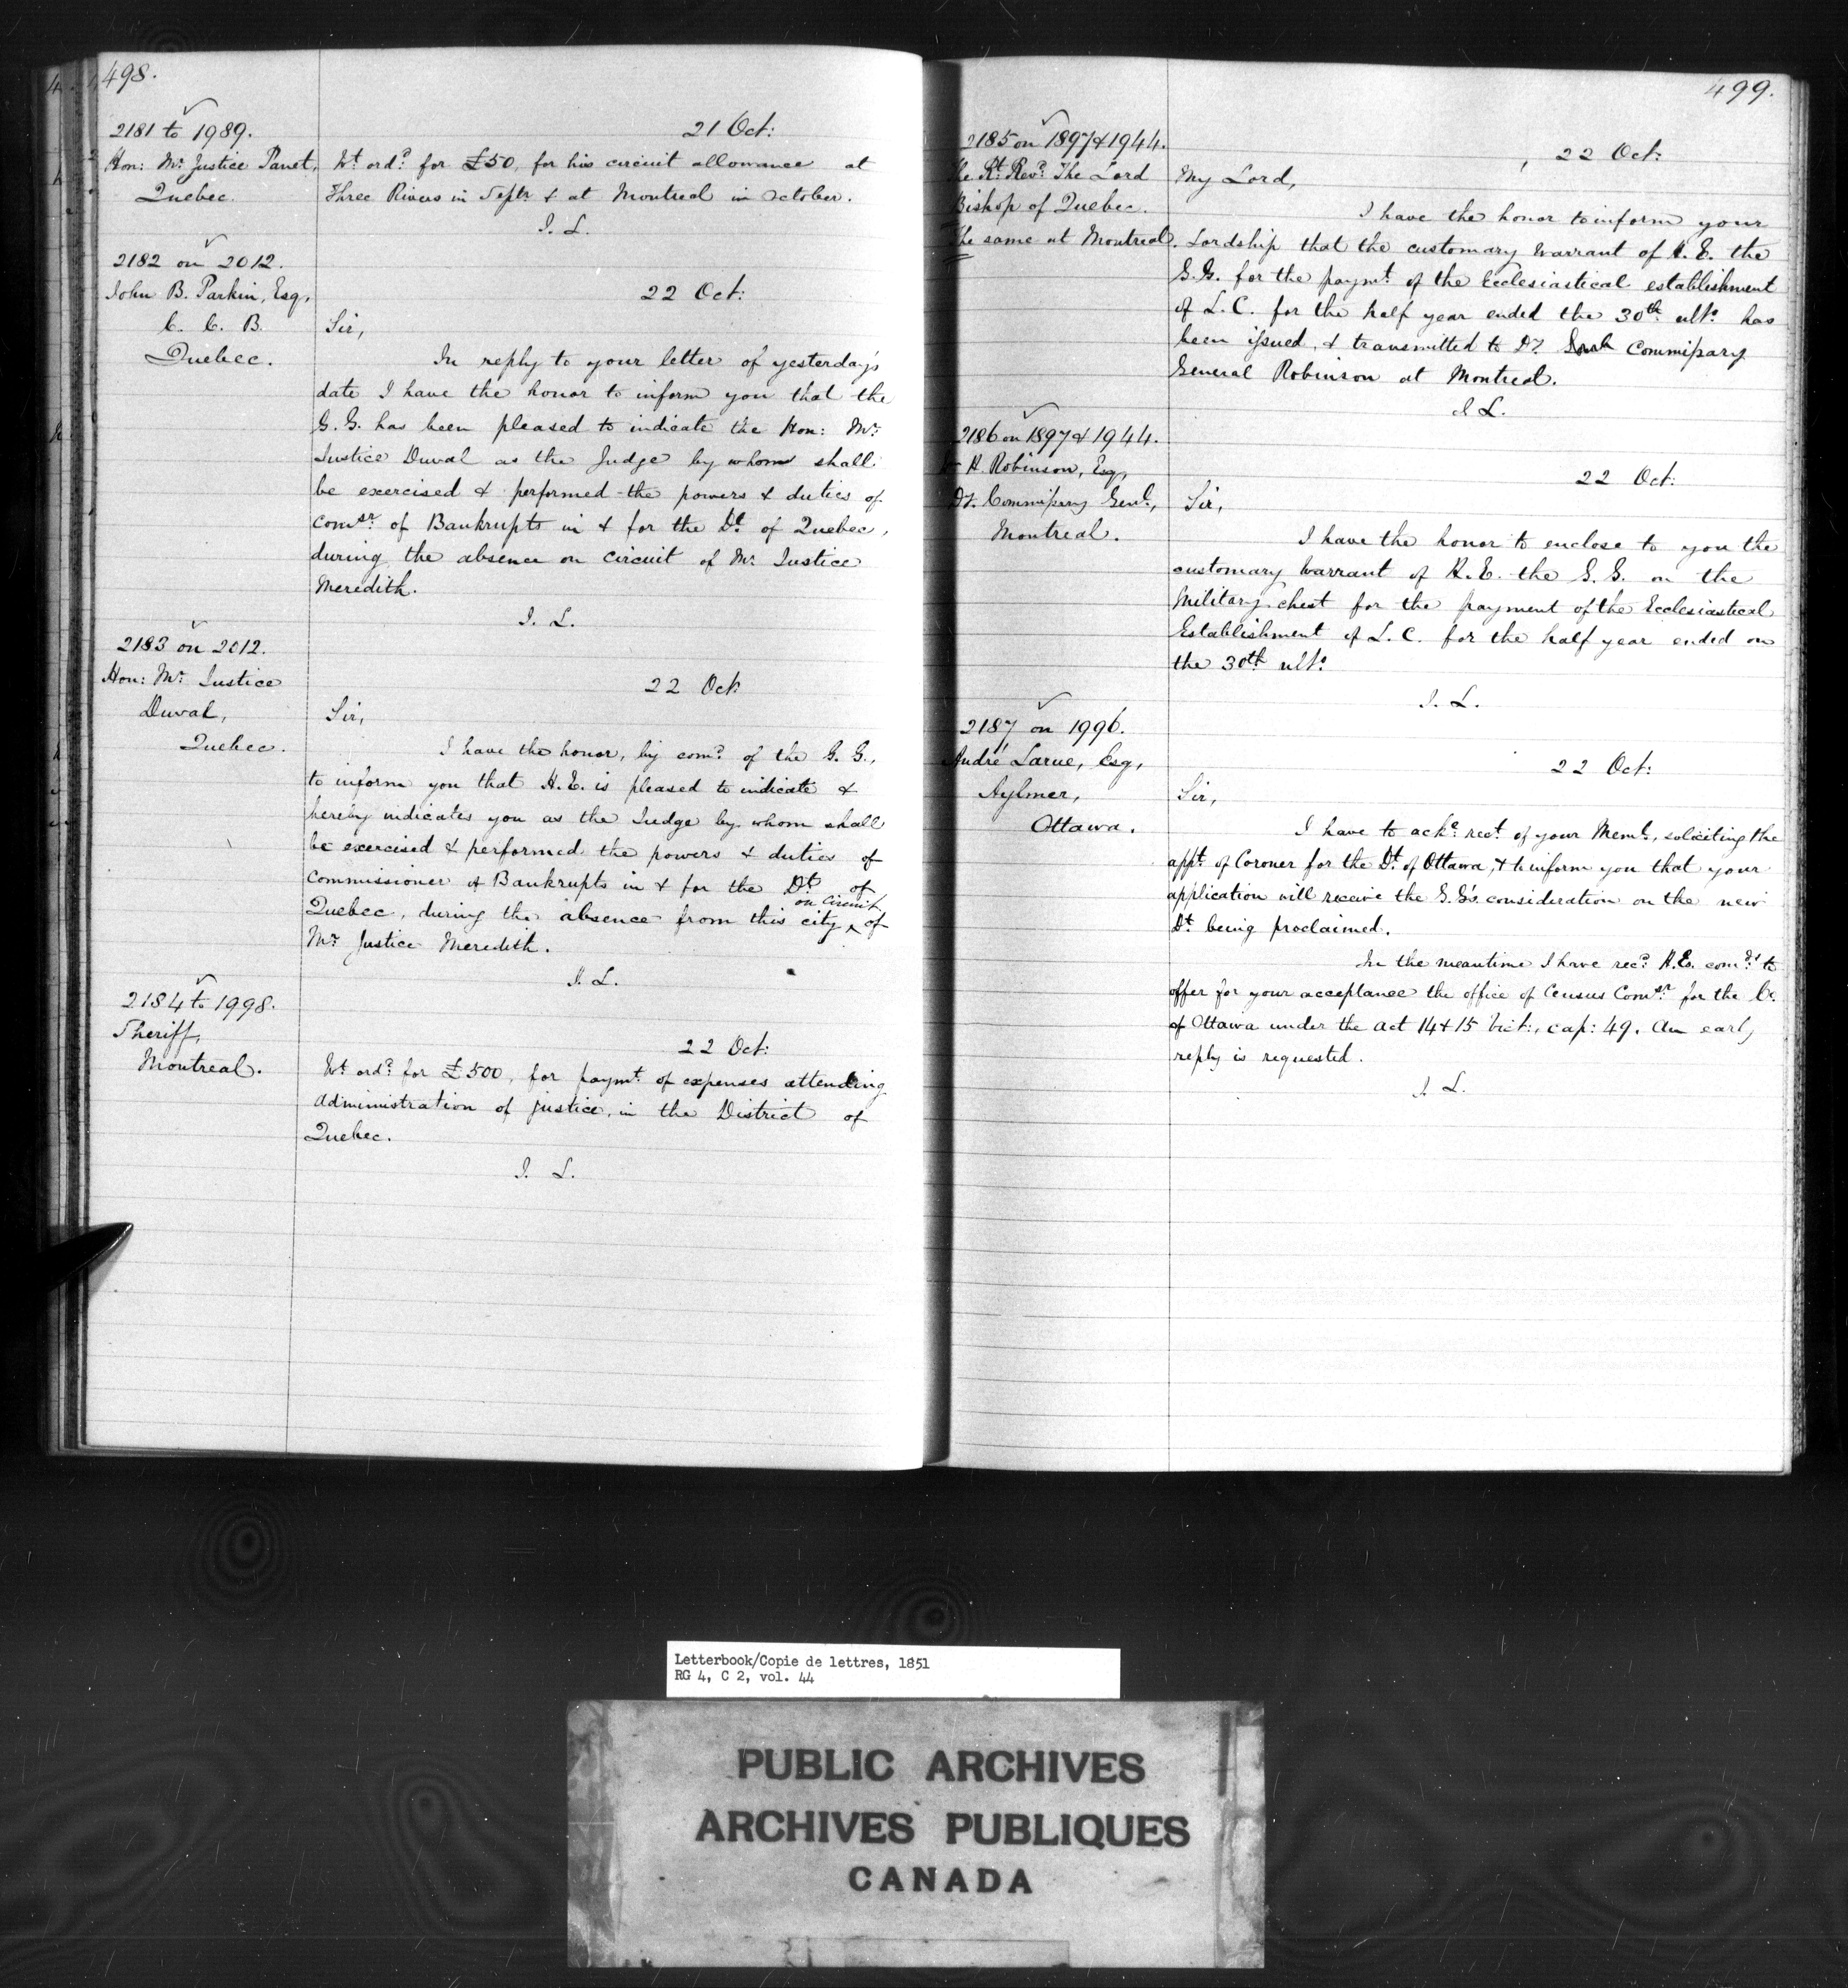 498.
2181 to 1989.
21 Oct:
Hon: Mr. Justice Panet,
Quebec.
Wt. ordd. for £50, for his circuit allowance at
Three Rivers in Septr. & at Montreal in October.
I. L.
2182 on 2012.
John B. Parkin, Esq,
C. C. B.
Quebec.
22 Oct:
Sir,
In reply to your letter of yesterday's
date I have the honor to inform you that the
G. G. has been pleased to indicate the Hon: Mr.
Justice Duval as the Judge by whom shall
be exercised & performed the powers & duties of
Comsr. of Bankrupts in & for the Dt. of Quebec,
during the absence on circuit of Mr. Justice
Meredith.
I. L.
2183 on 2012.
Hon: Mr. Justice
Duval,
Quebec.
22 Oct:
Sir,
I have the honor, by comd. of the G. G.,
to inform you that H.E. is pleased to indicate &
hereby indicates you as the Judge by whom shall
be exercised & performed the powers & duties of
Commissioner of Bankrupts in & for the Dt. of
Quebec, during the absence from this city on Circuit of
Mr. Justice Meredith.
I. L.
2184 to 1998.
Sheriff,
Montreal.
22 Oct:
Wt. ordd. for £500, for paymt. of expenses attending
administration of justice, in the District of
Quebec.
I. L.
499.
2185 on 1897 & 1944.
The Rt. Revd. The Lord
Bishop of Quebec.
The same at Montreal.
22 Oct:
My Lord,
I have the honor to inform your
Lordship that the customary Warrant of H. E. the
G. G. for the paymt. of the Ecclesiastical establishment
of L. C. for the half year ended the 30th. ulto. has
been issued, & transmitted to Dy. Commissary
General Robinson at Montreal.
I L.
2186 on 1897 & 1944.
H. Robinson, Esq,
Dy. Commissary Genl.,
Montreal.
22 Oct:
Sir,
I have the honor to enclose to you the
customary Warrant of H. E. the G. G. on the
Military chest for the payment of the Ecclesiastical
Establishment of L. C. for the half year ended on
the 30th ulto.
I. L.
2187 on 1996.
André Larue, Esq,
Aylmer,
Ottawa.
22 Oct:
Sir,
I have to acke. rect. of your Meml., soliciting the
appt. of Coroner for the Dt. of Ottawa, & to inform you that your
application will receive the G. G's. consideration on the new
Dt. being proclaimed.
In the meantime I have recd. H.E. comds. to
offer for your acceptance the office of Census Comsr. for the Co.
of Ottawa under the act 14 & 15 Vict:, cap: 49. An early
reply is requested.
I. L.
Letterbook/Copie de lettres, 1851
RG 4, C 2, vol. 44
PUBLIC ARCHIVES
ARCHIVES PUBLIQUES
CANADA